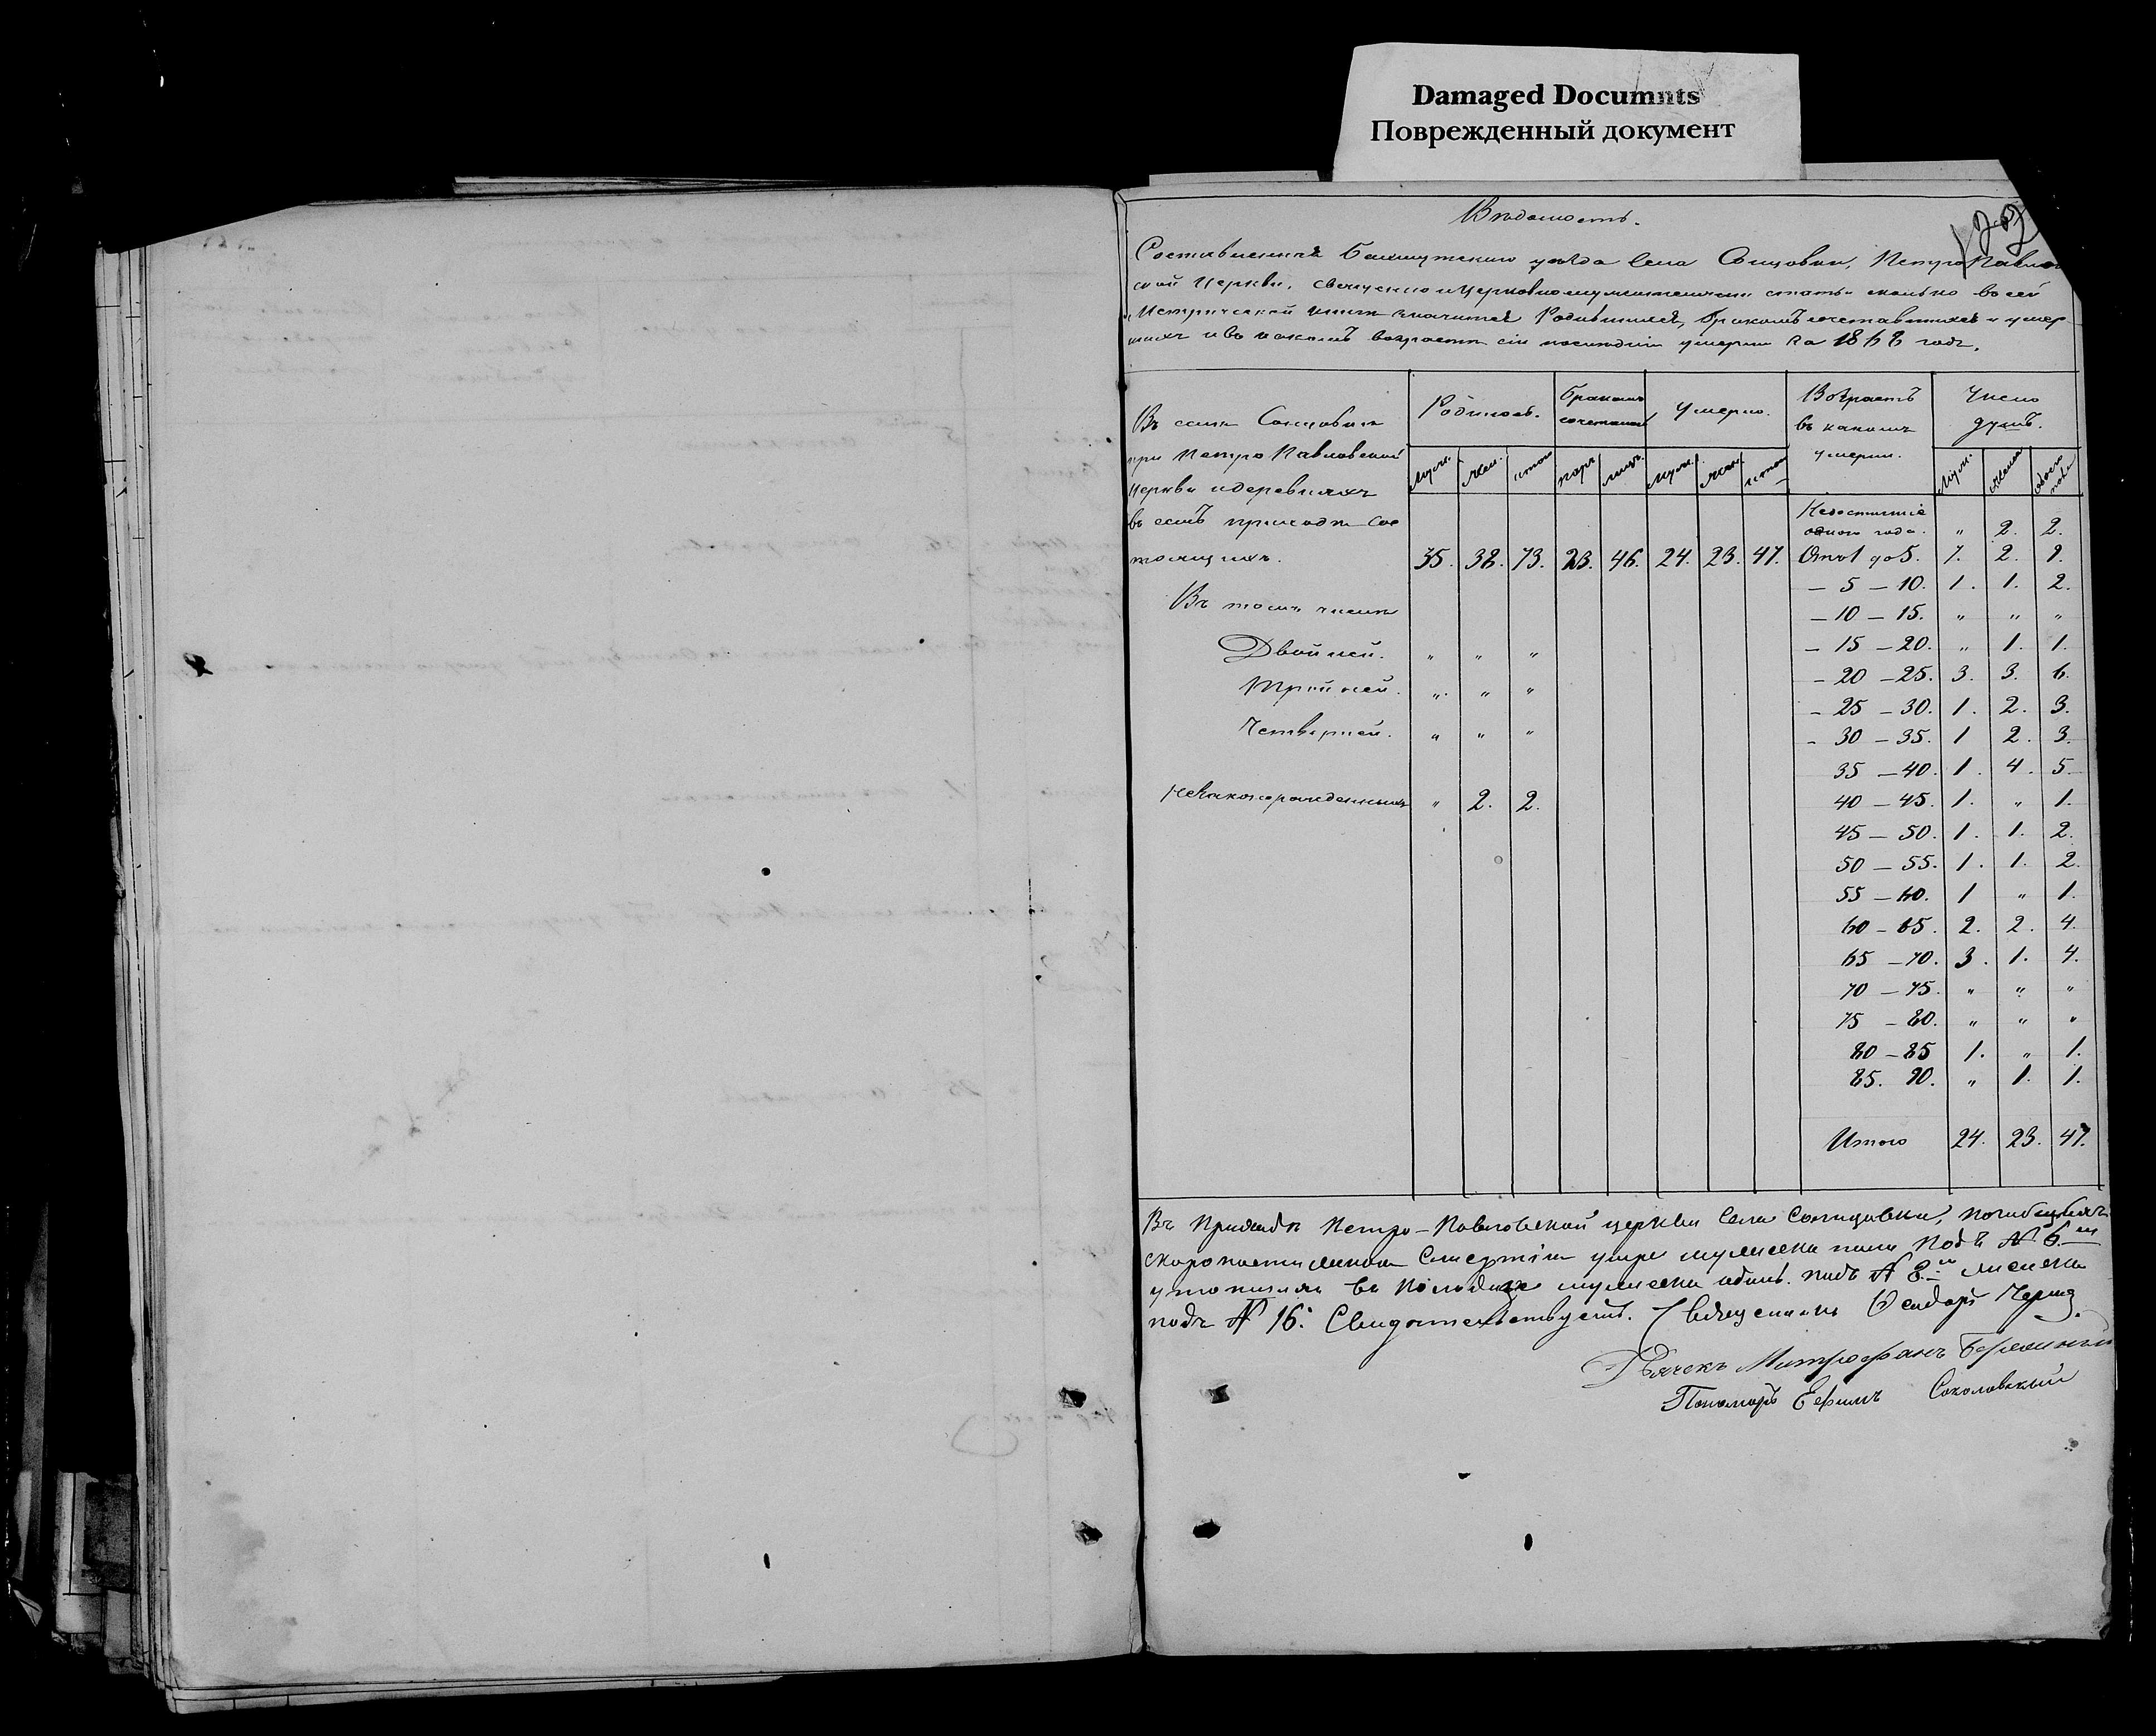 Damaged Documnts
Поврежденный документ
Вѣдомость.
Составленная Бахмутскаго уѣзда Села Сонцовки, Петро Павлов
ской Церкви, священно и Церковнослужителями сколько во сей
Метрической книгѣ значится Родившихся, бракомъ сочетавшихся и умер
шихъ и въ какомъ возрастѣ сіи послѣдніи умерли за 1868 годъ.
Въ селѣ Сонцовкѣ
при Петро Павловской
Церкви и деревняхъ
въ семъ приходѣ сос
тоящихъ.
Родилось. Бракомъ сочеталось Умерло. Возрастъ въ какомъ умерли. Число душъ.
Муж. Жен. итого паръ лицъ. муж. жен. итого Муж. Женск обоего пола
35. 38. 73. 23. 46. 24. 23. 47.
Недостигшіе
одного года. " 2. 2.
Отъ 1 до 5. 7. 2. 9.
– 5 – 10. 1. 1. 2.
– 10 – 15. " " "
– 15 – 20. " 1. 1.
– 20 – 25. 3. 3. 6.
– 25 – 30. 1. 2. 3.
– 30 – 35. 1 2. 3.
35 – 40. 1. 4. 5.
40 – 45. 1. " 1.
45 – 50. 1. 1. 2.
50 – 55. 1. 1. 2.
55 – 60. 1 " 1.
60 – 65. 2. 2. 4.
65 – 70. 3. 1. 4.
70 – 75. " " "
75 – 80. " " "
80 – 85 1. " 1.
85. 90. " 1. 1.
Итого 24. 23. 47.
Въ томъ числѣ
Двойней. " " "
Тройней. " " "
Четверней. " " "
Незаконорожденныхъ " 2. 2.
Въ Приходѣ Петро-Павловской церкви Села Сонцовки, погибшихъ
скоропостижною Смертію умре мужеска пола Подъ № 6.м
утопшихъ въ мужеска одинъ. подъ № 8.м женска
подъ № 16. Свидѣтельствуетъ. Священникъ Ѳеодоръ
Дьячекъ Митрофанъ
Пономарь Ефимъ Соколовскій